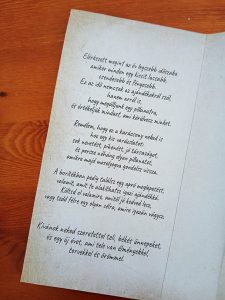 Elérkezett megint az év legszebb időszaka
amikor minden egy kicsit lassabb,
csendesebb és fényesebb.
Ez az idő nemcsak az ajándékokról szól,
hanem arról is,
hogy megálljunk egy pillanatra,
és értékeljük mindazt, ami körülvesz minket.
Remélem, hogy ez a karácsony neked is
hoz egy kis varázslatot:
sok nevetést, pihenést, jó társaságot,
és persze néhány olyan pillanatot,
amikre majd mosolyogva gondolsz vissza.
A borítékban pedig találsz egy apró meglepetést,
valamit, amit te alakíthatsz igazi ajándékká.
Költsd el valamire, amitől jó kedved lesz,
vagy tedd félre egy olyan célra, amire igazán vágysz.
Kívánok neked szeretettel teli, békés ünnepeket,
és egy új évet, ami tele van élményekkel,
tervekkel és örömmel.